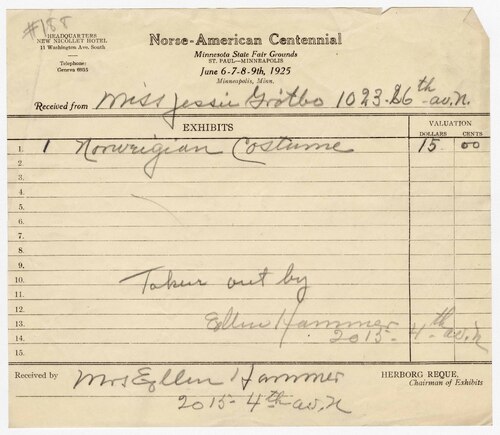 #188
HEADQUARTERS
NEW NICOLLET HOTEL
11 Washington Ave. South
Telephone:
Geneva 6835
Norse-American Centennial
Minnesota State Fair Grounds
ST. PAUL—MINNEAPOLIS
June 6-7-8-9th, 1925
Minneapolis, Minn.
Received from Miss Jessie Grotbo 1023-26th av. N.
EXHIBITS
VALUATION
DOLLARS CENTS
1. 1 Norwigian Costume 15 00
2.
3.
4.
5.
6.
7.
8.
9.
10. Taken out by
11.
12.
13. Ellen Hammer
14. 2015- 4th av. N
15.
Received by Mrs Ellen Hammer
2015- 4th av. N
HERBORG REQUE,
Chairman of Exhibits